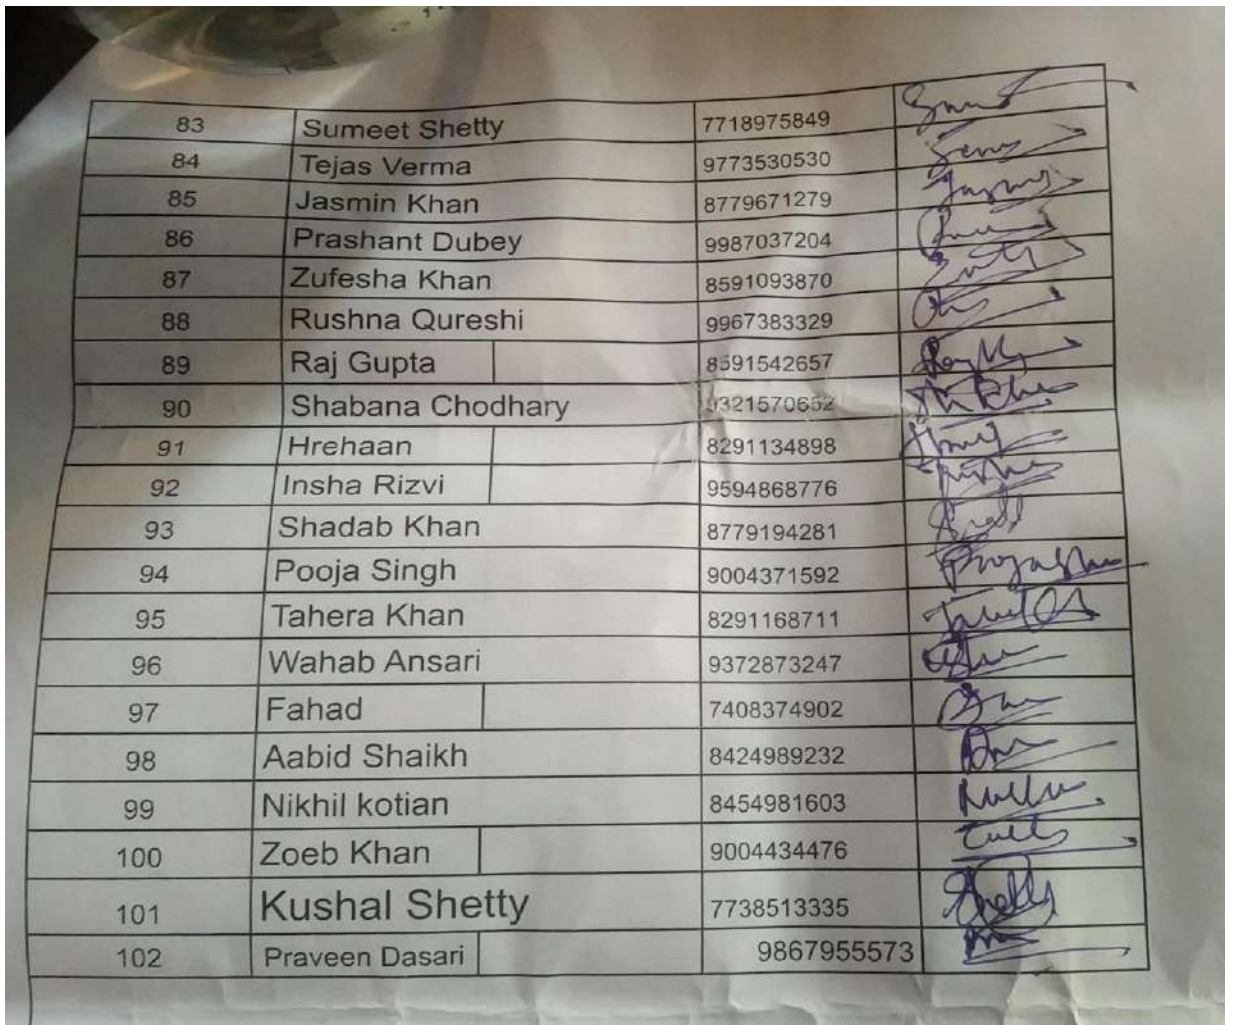 83 Sumeet Shetty 7718975849
84 Tejas Verma 9773530530
85 Jasmin Khan 8779671279
86 Prashant Dubey 9987037204
87 Zufesha Khan 8591093870
88 Rushna Qureshi 9967383329
89 Raj Gupta 8591542657
90 Shabana Chodhary 9321570652
91 Hrehaan 8291134898
92 Insha Rizvi 9594868776
93 Shadab Khan 8779194281
94 Pooja Singh 9004371592
95 Tahera Khan 8291168711
96 Wahab Ansari 9372873247
97 Fahad 7408374902
98 Aabid Shaikh 8424989232
99 Nikhil kotian 8454981603
100 Zoeb Khan 9004434476
101 Kushal Shetty 7738513335
102 Praveen Dasari 9867955573